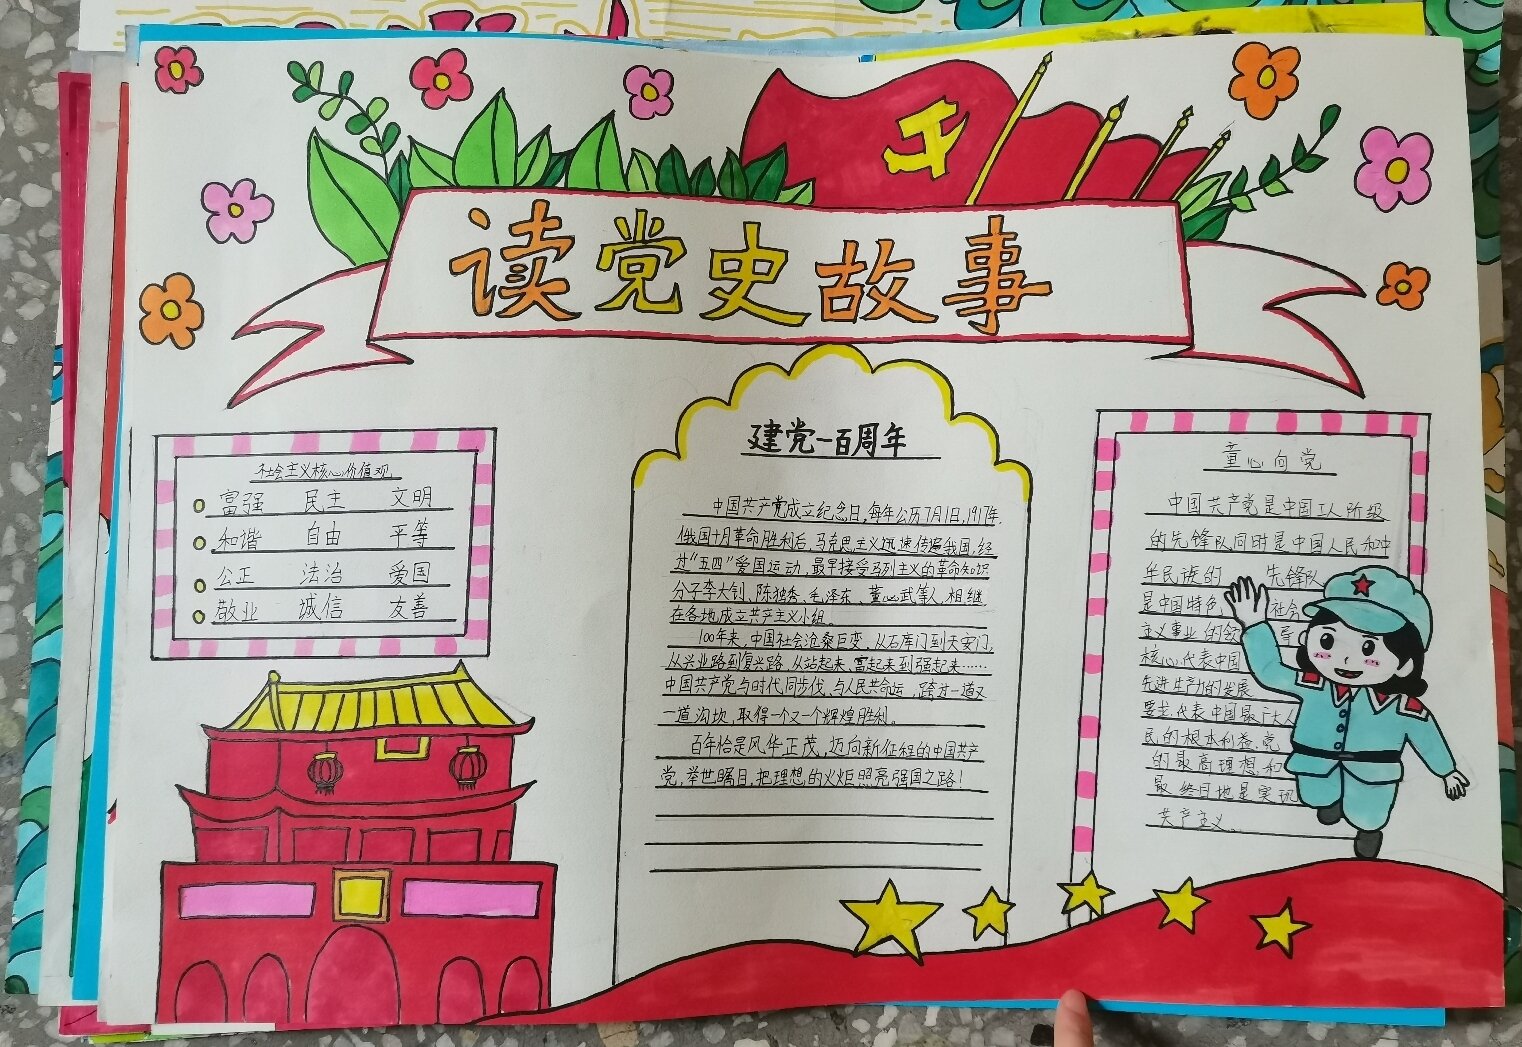 读党史故事
社会主义核心价值观
富强 民主 文明
和谐 自由 平等
公正 法治 爱国
敬业 诚信 友善
建党一百周年
中国共产党成立纪念日,每年公历7月1日,1917年,
俄国十月革命胜利后,马克思主义迅速传遍我国,经
过“五四”爱国运动,最早接受马列主义的革命知识
分子李大钊、陈独秀、毛泽东、董必武等人,相继
在各地成立共产主义小组。
100年来,中国社会沧桑巨变,从石库门到天安门,
从兴业路到复兴路,从站起来、富起来到强起来……
中国共产党与时代同步伐、与人民共命运,跨过一道又
一道沟坎,取得一个又一个辉煌胜利。
百年恰是风华正茂,迈向新征程的中国共产
党,举世瞩目,把理想的火炬照亮强国之路!
童心向党
中国共产党是中国工人阶级
的先锋队同时是中国人民和中
华民族的 先锋队
是中国特色 社会
主义事业的领 导
核心,代表中国
先进生产力的发展
要求,代表中国最广大人
民的根本利益,党
的最高理想和
最终目地是实现
共产主义。